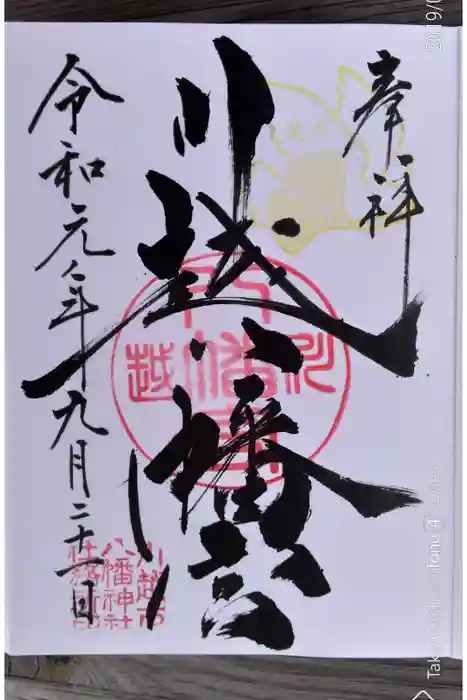 奉拝
川越八幡宮
令和元年九月二十一日
川越
八幡宮
川越市
八幡神社
社務所印
2019/0